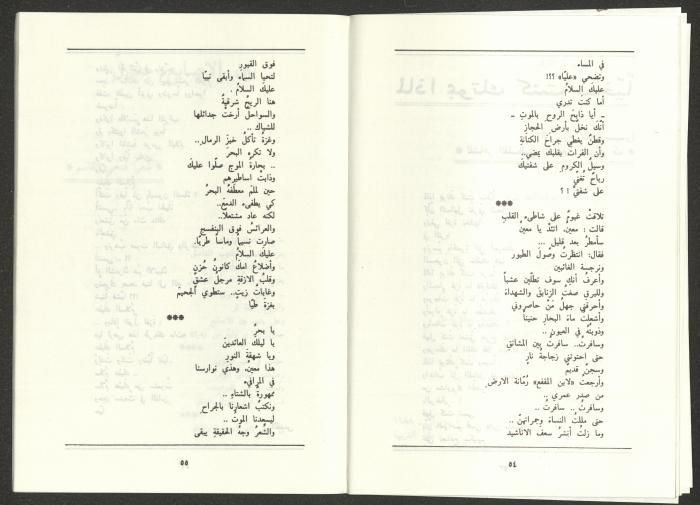 في المساء
وتضحي «عليّا» ؟؟!
عليك السلامُ
أما كنتَ تدري
ـ أيا ذابحَ الروحِ بالموتِ ـ
أنّك نخلٌ بأرضِ الحجازِ
وقطنٌ يغطي جراحَ الكنانةِ
وأن الفراتَ بقلبك يمضي..
وسيلُ الكرومِ على شفتيكَ
رياحٌ تُغنّي
على شفتيْ ! ؟
***
تلاقتْ غيومٌ على شاطىء القلبِ
قالت : معينٌ، اتئدْ يا معينُ
سأمطرُ بعد قليلٍ ...
فقال: انتظرتُ وصُولَ الطيور
ونرجسةِ الغائبين
وأعرفُ أنكِ سوف تظلّين عشباً
وللبرقِ صمتُ الزنابقِ والشهداءْ
وأحرقني جهلُ مَنْ حاصروني
وأشعلتُ ماءَ البحارِ حنيناً
وذوبتُهُ في العيونِ ..
وسافرتُ.. سافرتُ بين المشانقِ
حتى احتوتني زجاجةُ نارٍ
وسجنٌ قديمٌ
وأرجعتُ «لابن المقفعِ» رُمّانة الارضِ
من صدرِ عمري ..
وسافرتُ .. سافرتُ ..
حتى مللتُ النساءَ وجمراتهنّ ..
وما زلتُ أنشرُ سعفَ الاناشيد
٥٤
فوق القبورِ
لتحيا السماء وأبقى نبيّا
عليك السلامُ .
هنا الريحُ شرقيةٌ
والسواحلُ أرختْ جدائلَها
للشباك ..
وغزةُ تأكلُ خبزَ الرمالِ..
ولا تكره البحرَ
.. بحارةُ الموجِ صلّوا عليكَ
وذابتْ اساطيرهم
حين لملمَ معطفَهُ البحرُ
كي يطفىءَ الدمعَ..
لكنه عاد مشتعلاً..
والعرائسُ فوق البنفسجِ
صارت نسيماً وماساً طريّا..
عليك السلامُ
وأضلاعُ امك كانونُ حُزنٍ
وقلبُ الازقةِ مرجلُ عشقٍ
وغاباتُ زيتٍ.. سنطوي الجحيمَ
بغزة طيّا
***
يا بحرُ
يا ليلكَ العائدينَ
ويا شهقةَ النورِ
هذا معينٌ، وهذي نوارسنا
في المرافىءِ
ممهورةٌ بالشتاءِ ..
ونكتبُ اشعارنا بالجراحِ
ليسعدنا الموتُ ..
والشعرُ وجهُ الحقيقةِ يبقى
٥٥